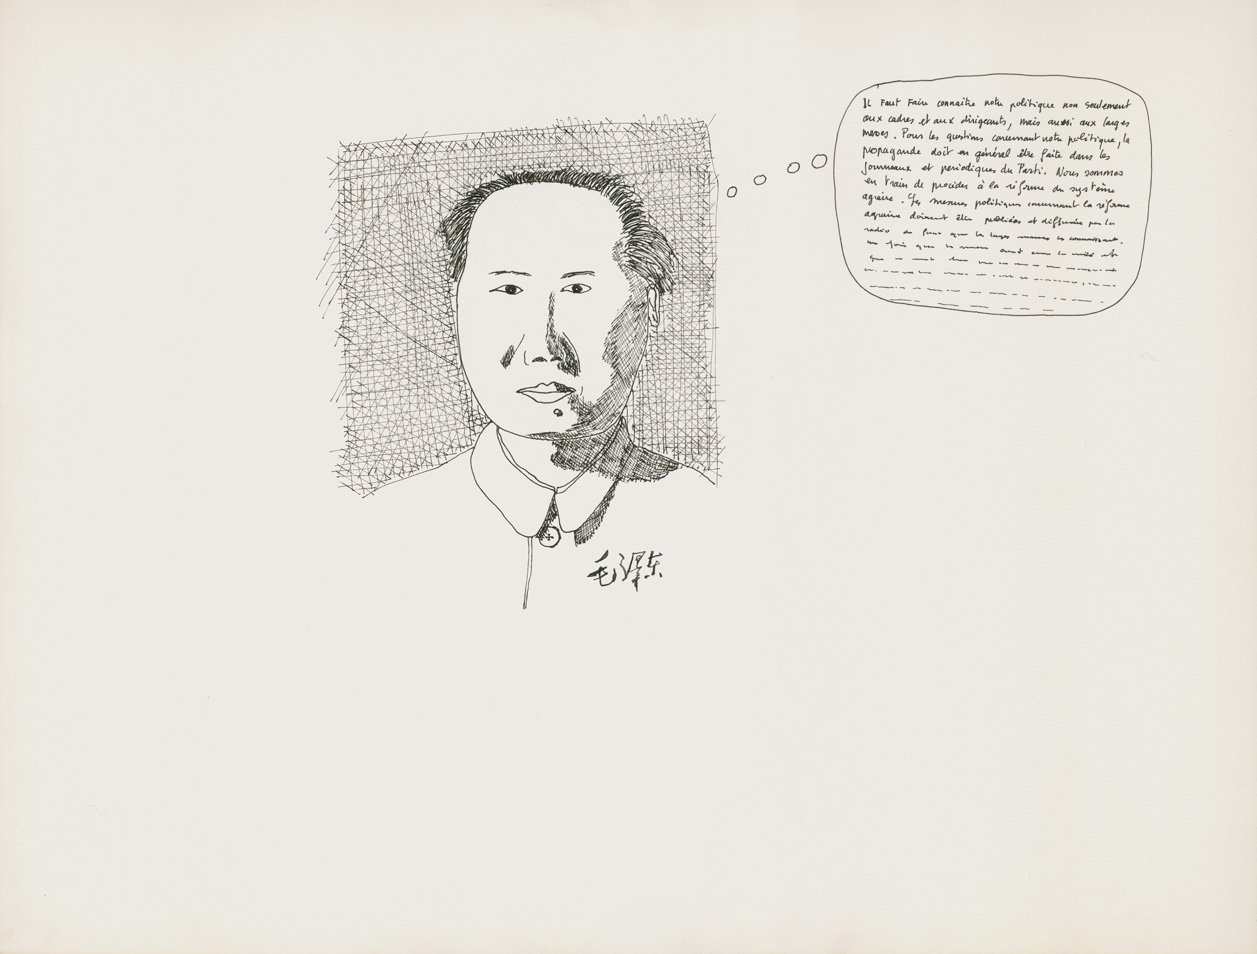 IL Faut Faire connaître notre politique non seulement
aux cadres et aux dirigeants, mais aussi aux larges
masses. Pour les questions concernant notre politique, la
propagande doit en général être faite dans les
journaux et périodiques du Parti. Nous sommes
en train de procéder à la réforme du système
agraire. Les mesures politiques concernant la réforme
agraire doivent être publiées et diffusées par la
radio que les larges masses les connaissent.
fois que
que
毛泽东